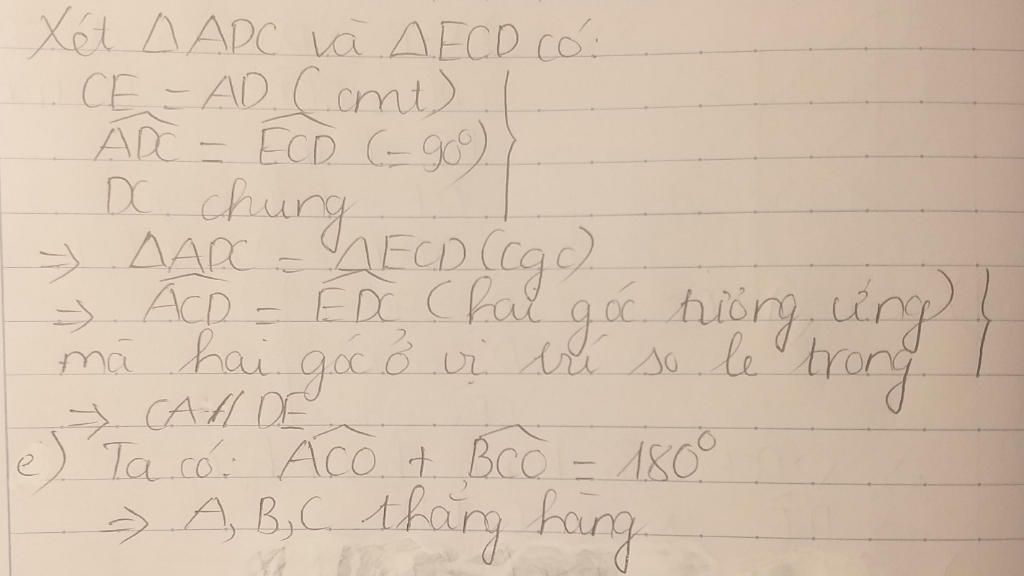 Xét ΔADC và ΔECD có:
CE = AD (cmt)
ADC = ECD (=90°)
DC chung
=> ΔADC = ΔECD (cgc)
=> ACD = EDC (hai góc tương ứng)
mà hai góc ở vị trí so le trong
=> CA // DE
e) Ta có: ACO + BCO = 180°
=> A, B, C thẳng hàng